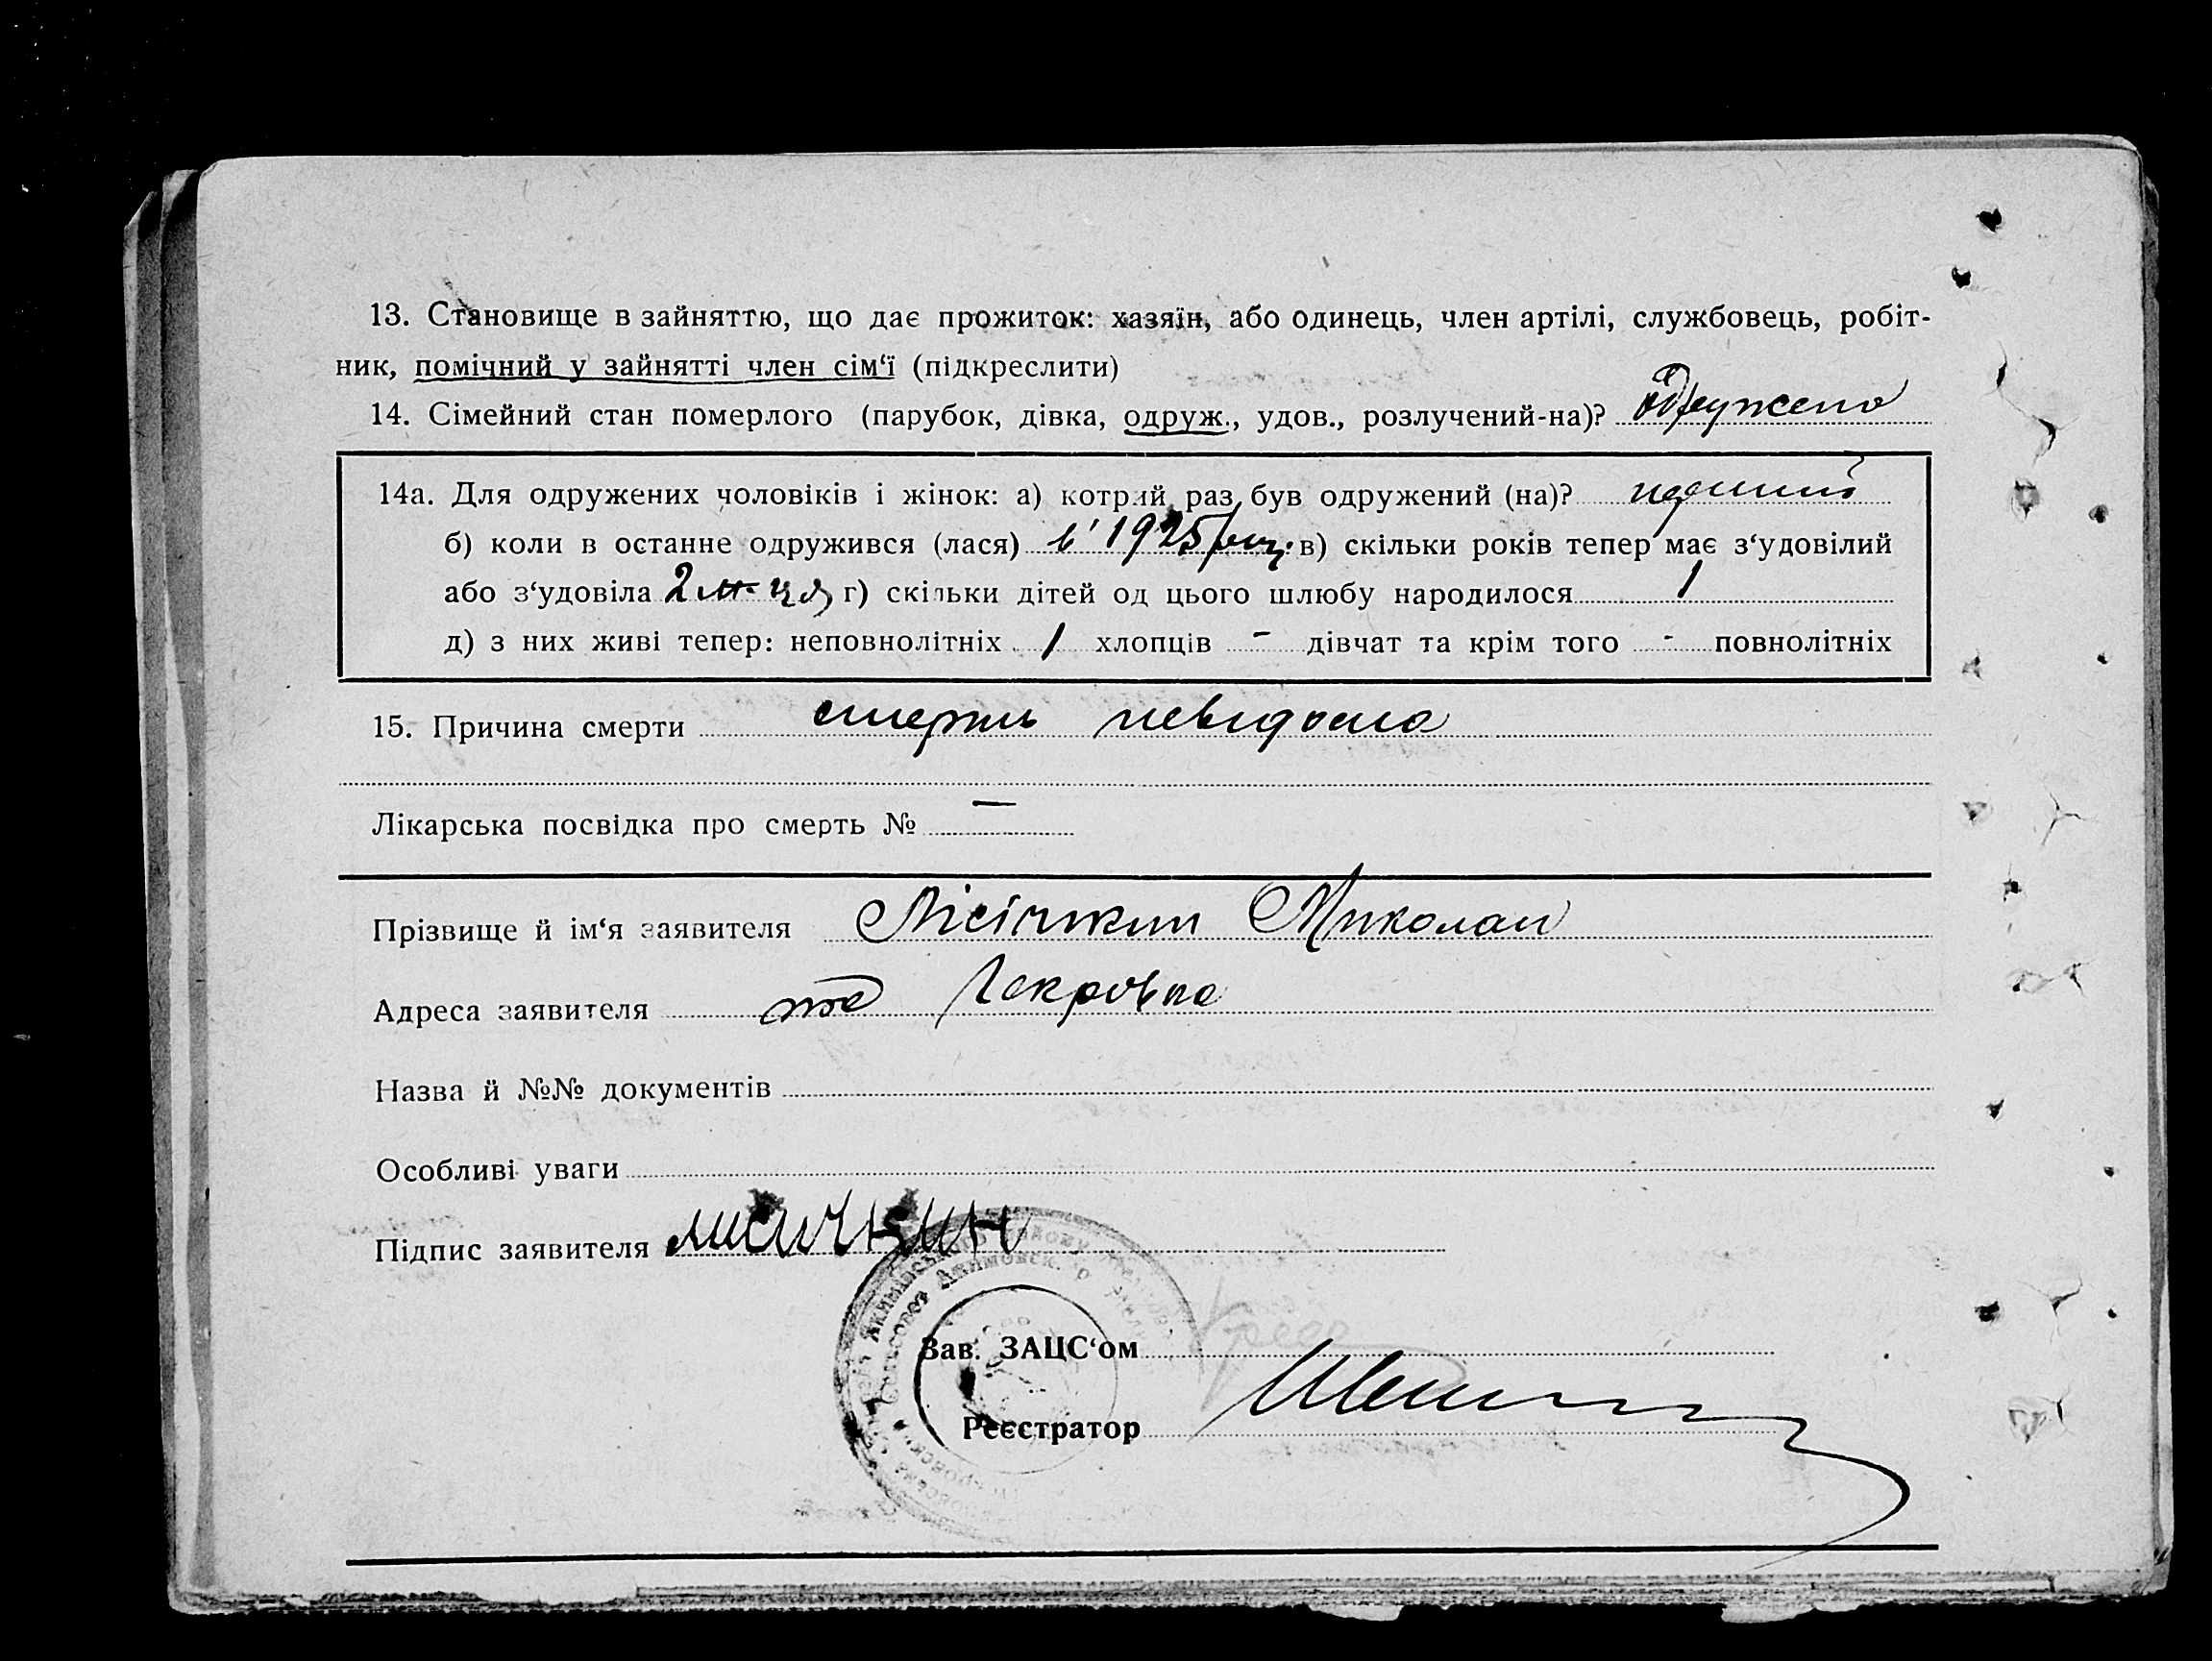 13. Становище в зайняттю, що дає прожиток: хазяїн, або одинець, член артілі, службовець, робіт-
ник, помічний у зайнятті член сім‘ї (підкреслити)
14. Сімейний стан померлого (парубок, дівка, одруж., удов., розлучений-на)? одружено
14а. Для одружених чоловіків і жінок: а) котрий раз був одружений (на)?
б) коли в останне одружився (лася) в 1925 році в) скільки років тепер має з‘удовілий
або з‘удовіла 2 м-ця г) скільки дітей од цього шлюбу народилося 1
д) з них живі тепер: неповнолітніх 1 хлопців - дівчат та крім того - повнолітніх
15. Причина смерти смерть невидома
Лікарська посвідка про смерть № —
Прізвище й ім‘я заявителя Лісічкин Миколай
Адреса заявителя Покровка
Назва й №№ документів
Особливі уваги
Підпис заявителя лисичкин
Зав. ЗАЦС‘ом
Реєстратор